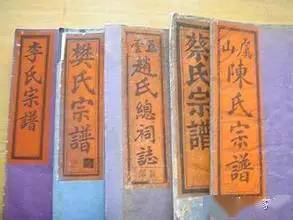 李氏宗譜
樊氏宗譜
五雲
趙氏總祠誌
蔡氏宗譜
虞山
陳氏宗譜